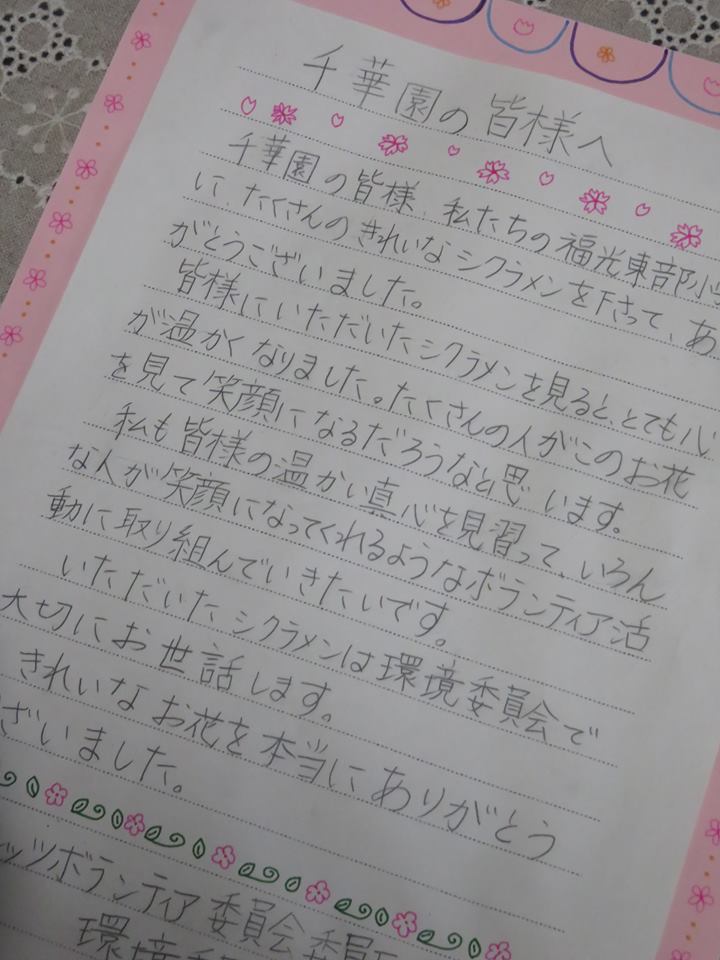 千華園の皆様へ
千華園の皆様、私たちの福光東部小学
に、たくさんのきれいなシクラメンを下さって、あ
がとうございました。
皆様にいただいたシクラメンを見ると、とても心
が温かくなりました。たくさんの人がこのお花
を見て笑顔になるだろうなと思います。
私も皆様の温かい真心を見習って、いろん
な人が笑顔になってくれるようなボランティア活
動に取り組んでいきたいです。
いただいたシクラメンは環境委員会で
大切にお世話します。
きれいなお花を本当にありがとう
ざいました。
ッツボランティア委員会委員
環境